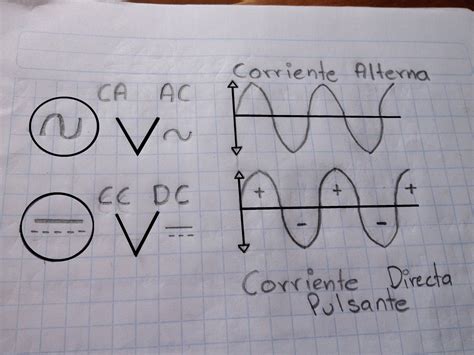 Corriente Alterna
CA AC
V~
+ + +
CC DC
V
- -
Corriente Directa
Pulsante